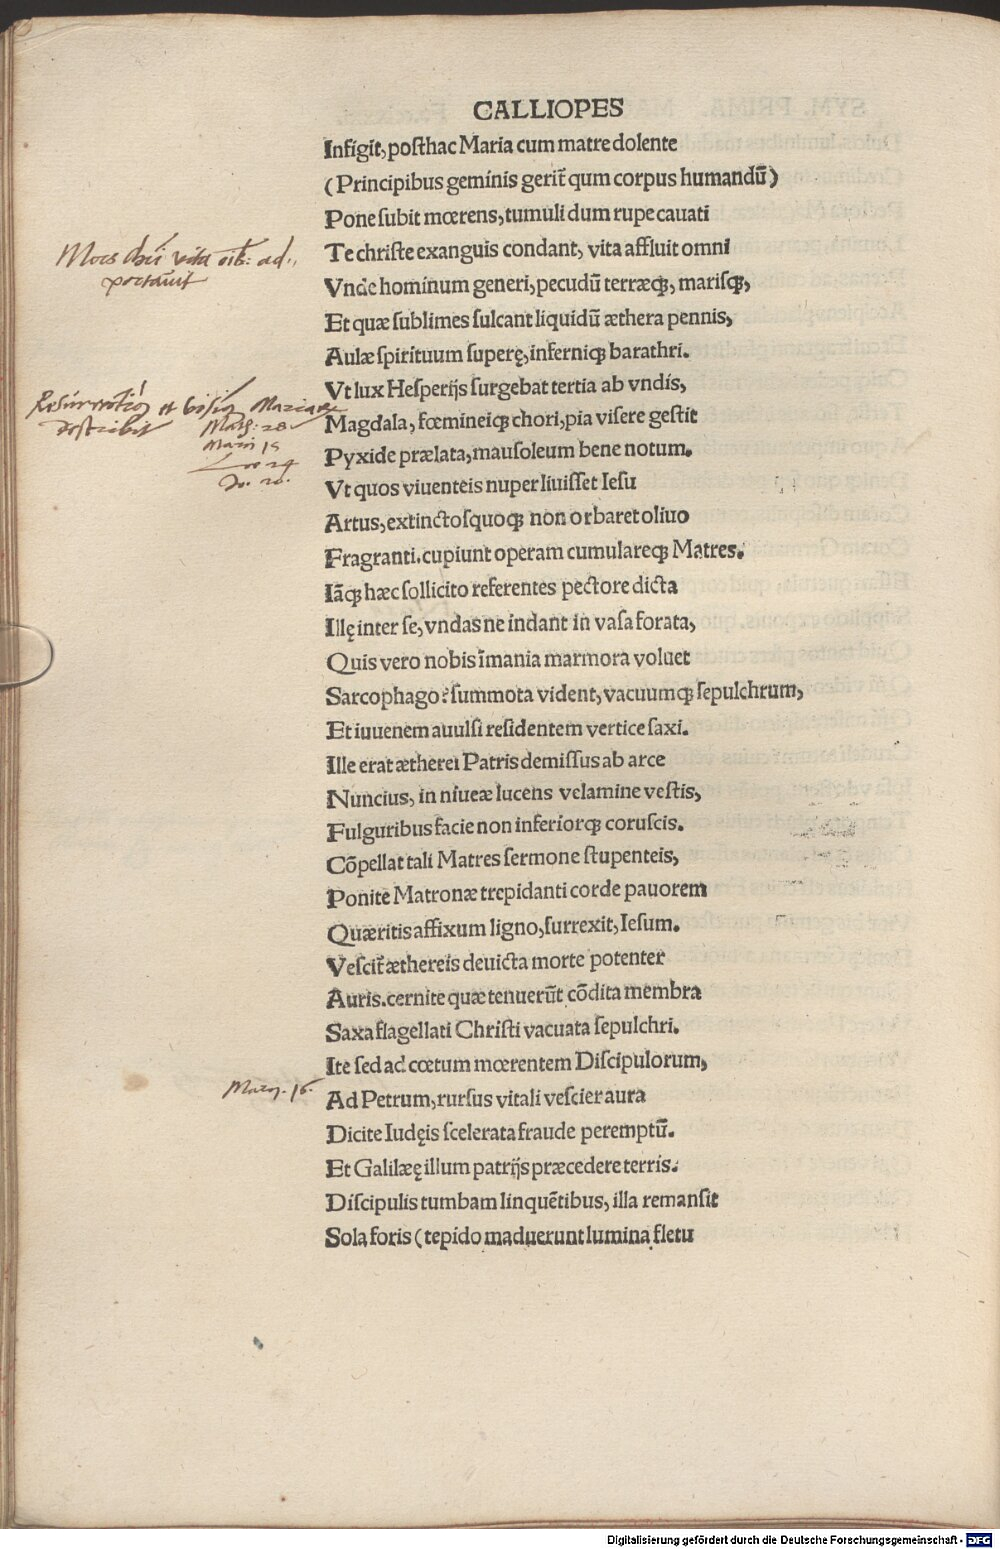 CALLIOPES
Infigit, posthac Maria cum matre dolente
(Principibus geminis gerit̃ qum corpus humandũ)
Pone subit mœrens, tumuli dum rupe cauati
Te christe exanguis condant, vita affluit omni
Vnde hominum generi, pecudũ terræq;, marisq;,
Et quæ sublimes sulcant liquidũ æthera pennis,
Aulæ spirituum superę, inferniq; barathri.
Vt lux Hesperijs surgebat tertia ab vndis,
Magdala, fœmineiq; chori, pia visere gestit
Pyxide prælata, mausoleum bene notum.
Vt quos viuenteis nuper liuisset Iesu
Artus, extinctosquoq; non orbaret oliuo
Fragranti. cupiunt operam cumulareq; Matres.
Iãq; hæc sollicito referentes pectore dicta
Illę inter se, vndas ne indant in vasa forata,
Quis vero nobis ĩmania marmora voluet
Sarcophago? summota vident, vacuumq; sepulchrum,
Et iuuenem auulsi residentem vertice saxi.
Ille erat ætherei Patris demissus ab arce
Nuncius, in niueæ lucens velamine vestis,
Fulguribus facie non inferiorq; coruscis.
Cõpellat tali Matres sermone stupenteis,
Ponite Matronæ trepidanti corde pauorem
Quæritis affixum ligno, surrexit, Iesum.
Vescit̃ æthereis deuicta morte potenter
Auris. cernite quæ tenuerũt cõdita membra
Saxa flagellati Christi vacuata sepulchri.
Ite sed ad cœtum mœrentem Discipulorum,
Ad Petrum, rursus vitali vescier aura
Dicite Iudęis scelerata fraude peremptũ.
Et Galilęę illum patrijs præcedere terris.
Discipulis tumbam linquẽtibus, illa remansit
Sola foris (tepido maduerunt lumina fletu
Mors vita ad
portauit
et Mariae
describit Math: 28
Marci 15
24
Jo. 20.
Marc. 16.
Digitalisierung gefördert durch die Deutsche Forschungsgemeinschaft - DFG